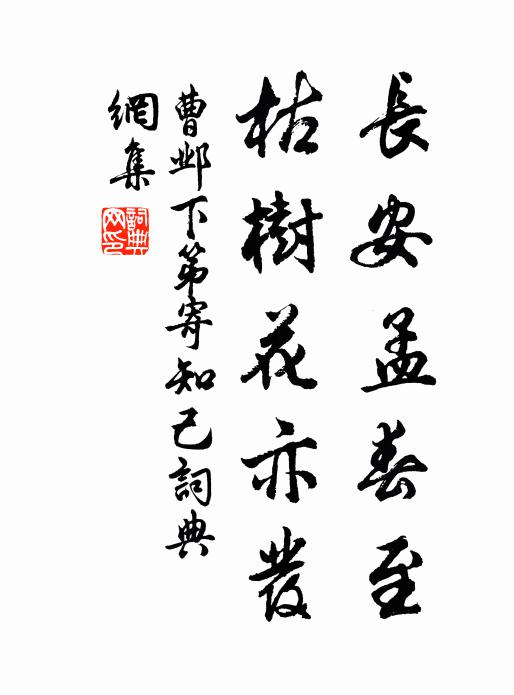 長安孟春至
枯樹花亦發
曹鄴下第寄知己詞典
網集
詞典
网印